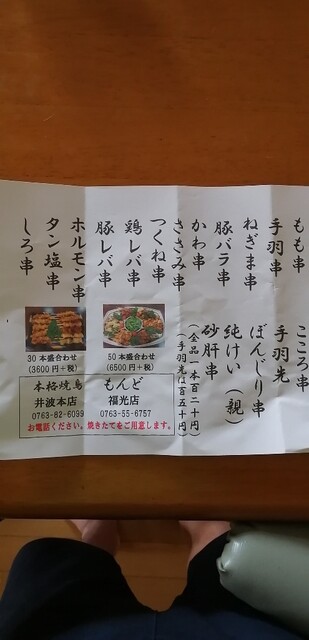 もも串
手羽串
ねぎま串
豚バラ串
かわ串
ささみ串
つくね串
鶏レバ串
豚レバ串
ホルモン串
タン塩串
しろ串
こころ串
手羽先
ぼんじり串
純けい(親)
砂肝串
(全品一本百二十円)
(手羽先は百五十円)
50本盛合わせ
(6500円+税)
30本盛合わせ
(3600円+税)
本格焼鳥 もんど
井波本店
0763-82-6099
福光店
0763-55-6757
お電話ください。焼きたてをご用意します。